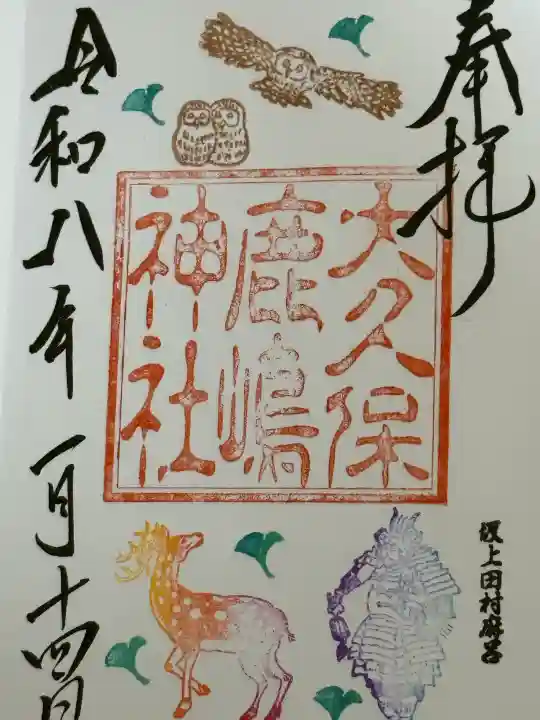 奉拝
大久保
鹿嶋
神社
坂上田村麻呂
令和八年一月十四日